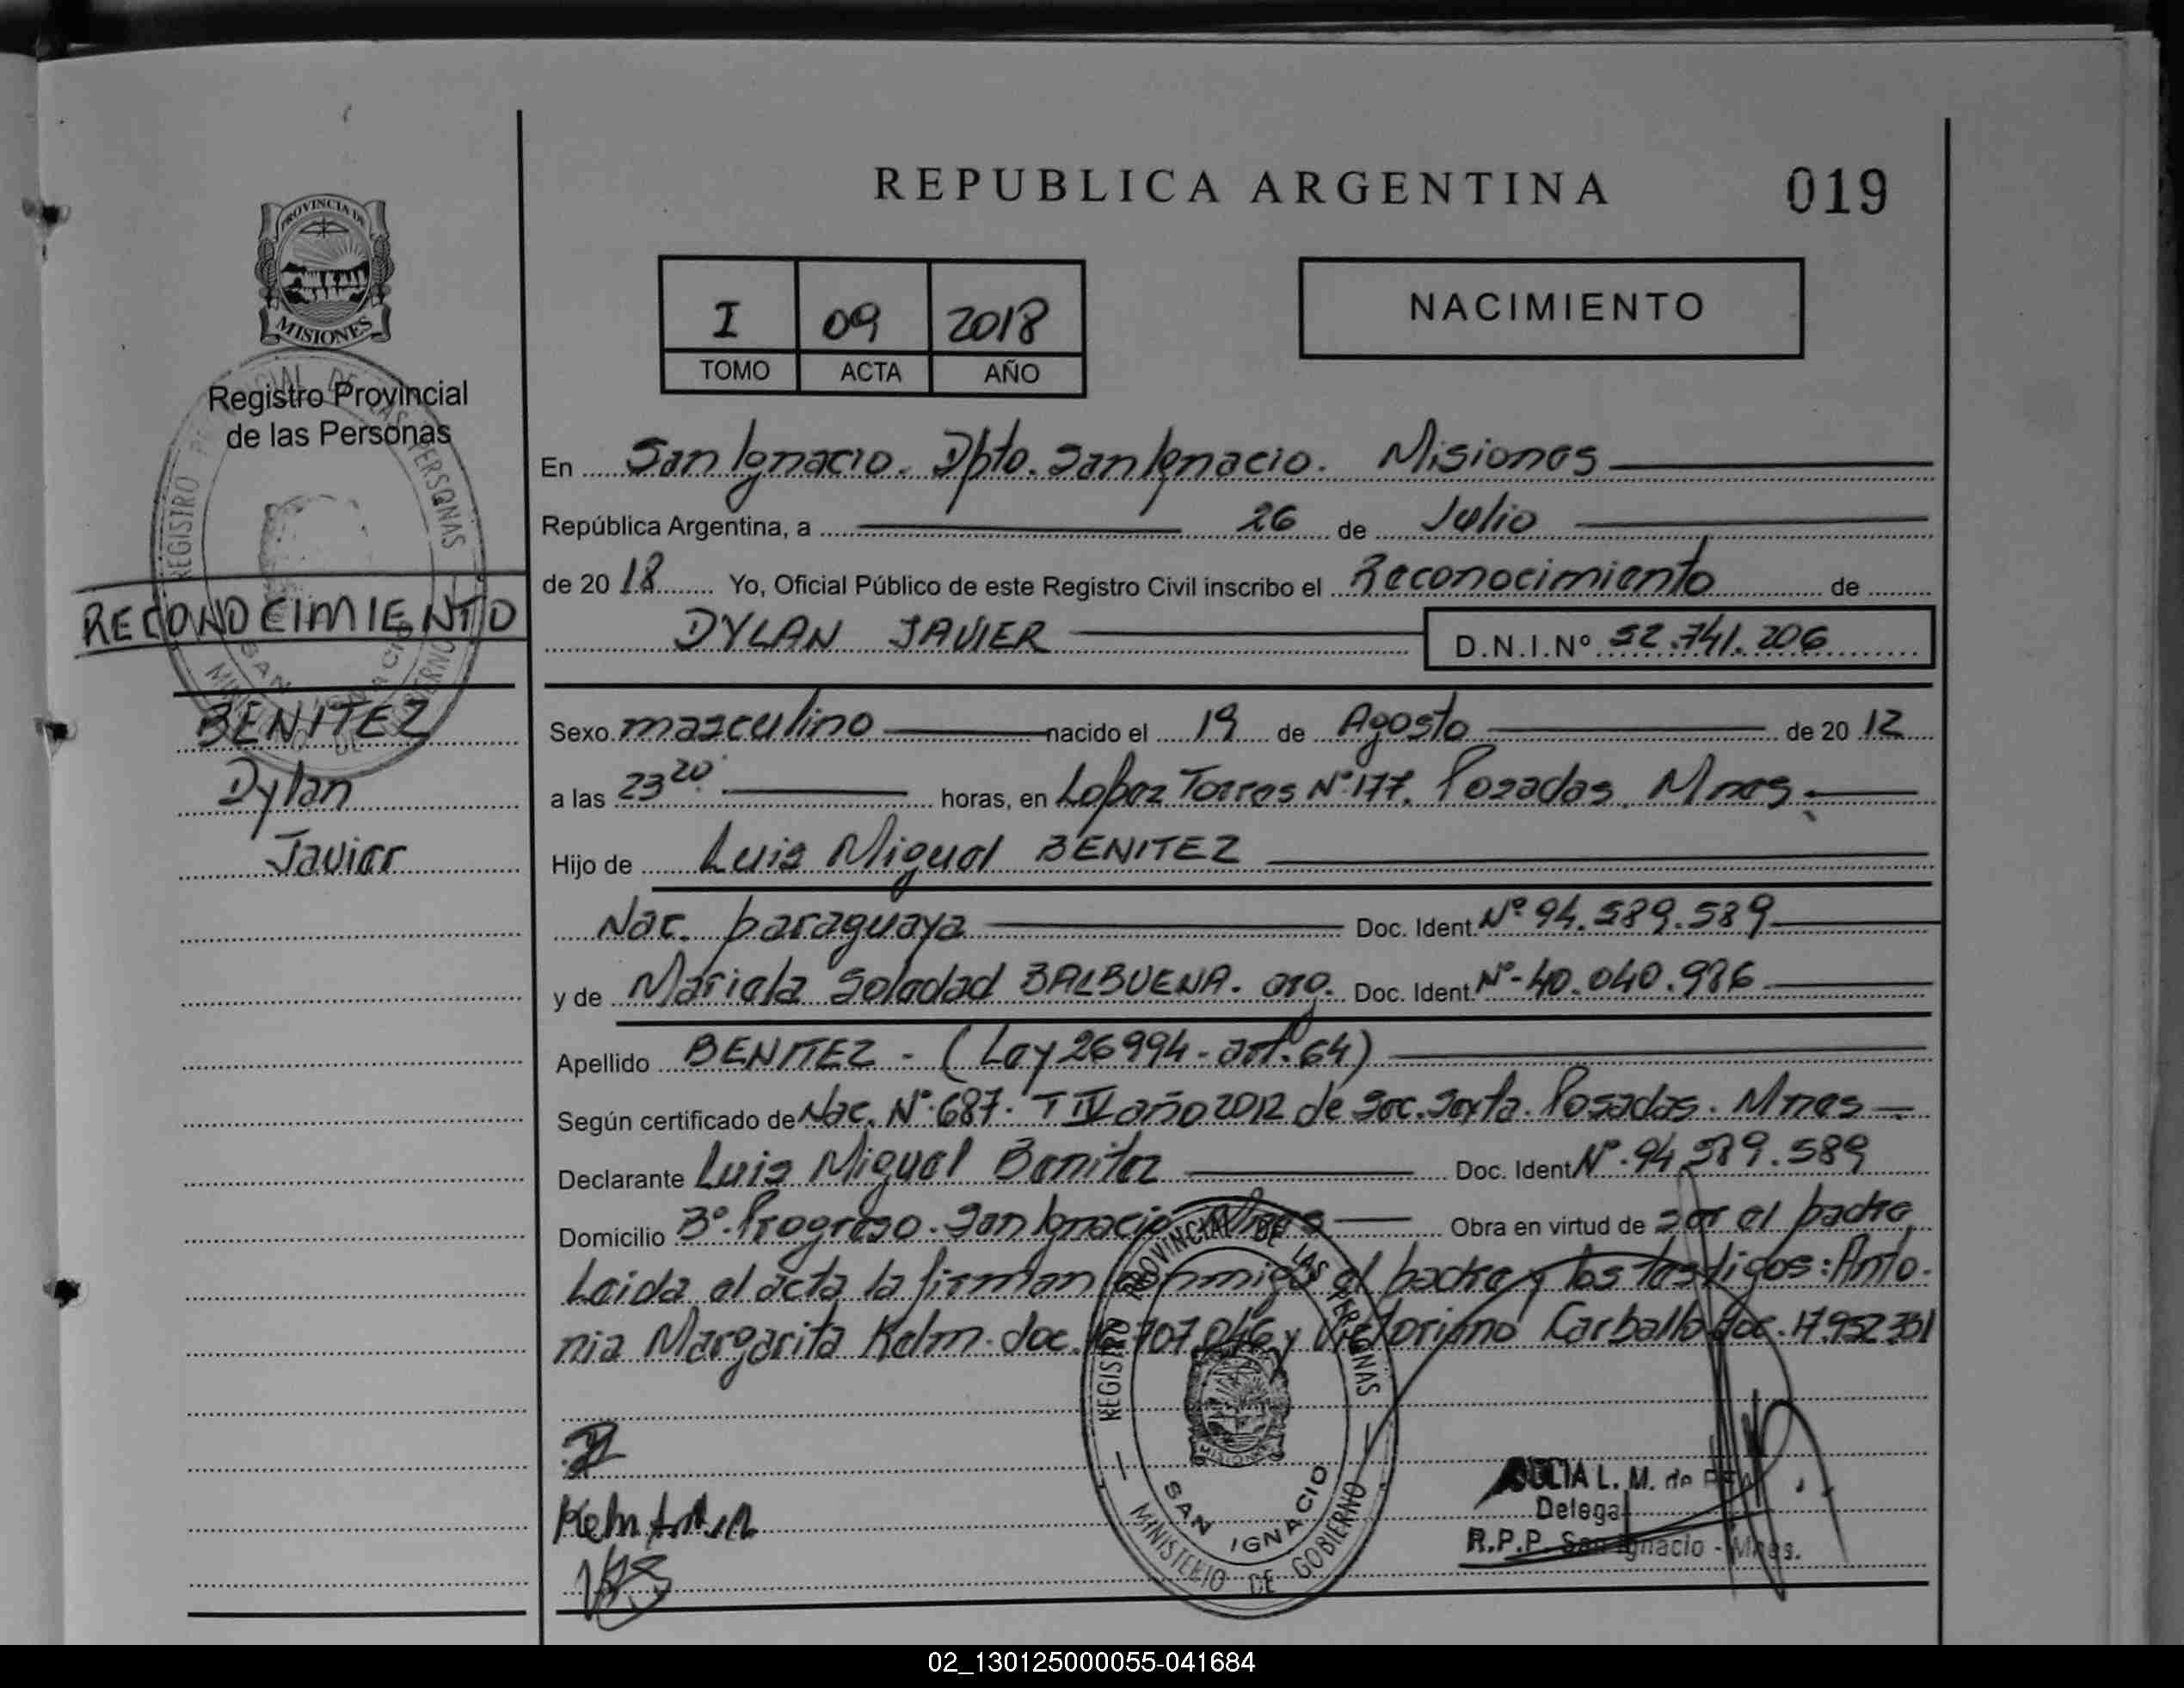 REPUBLICA ARGENTINA
019
PROVINCIA DE
MISIONES
Registro Provincial
de las Personas
I 09 2018
TOMO ACTA AÑO
NACIMIENTO
En San Ignacio. Dpto. San Ignacio. Misiones
República Argentina, a 26 de Julio
de 2018 Yo, Oficial Público de este Registro Civil inscribo el Reconocimiento de
RECONOCIMIENTO
DYLAN JAVIER D.N.I.Nº 52.741.206
BENITEZ
Dylan
Javier
Sexo masculino nacido el 19 de Agosto de 2012
a las 23 20 horas, en Lopez Torres Nº 177. Posadas. Mnes.
Hijo de Luis Miguel BENITEZ
Nac. paraguaya Doc. Ident. Nº 94.589.589
y de Mariela Soledad BALBUENA. arg. Doc. Ident. Nº-40.040.986
Apellido BENITEZ - (Ley 26994 - art. 64)
Según certificado de Nac. Nº 687. T IV año 2012 de Sec. Sexta. Posadas. Mnes
Declarante Luis Miguel Benitez Doc. Ident Nº 94.589.589
Domicilio Bº. Progreso. San Ignacio. Mnes Obra en virtud de ser el padre
Leida el acta la firman conmigo el padre y los testigos: Anto.
nia Margarita Kelm. doc. 707.046 y Victoriano Carballo doc. 17.952.331
REGISTRO PROVINCIAL DE LAS PERSONAS
SAN IGNACIO
MINISTERIO DE GOBIERNO
L. M. de
Delega
R.P.P. San Ignacio - Mnes.
02_130125000055-041684